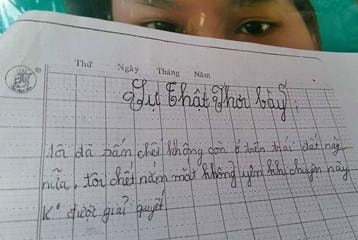 Thứ Ngày Tháng Năm
Sự thật Phơi bầy:
tôi đã bấn chết không con ở trên trái đất này
nữa, tôi chết năm mắt không yên khi chuyện này
K° được giải quyết